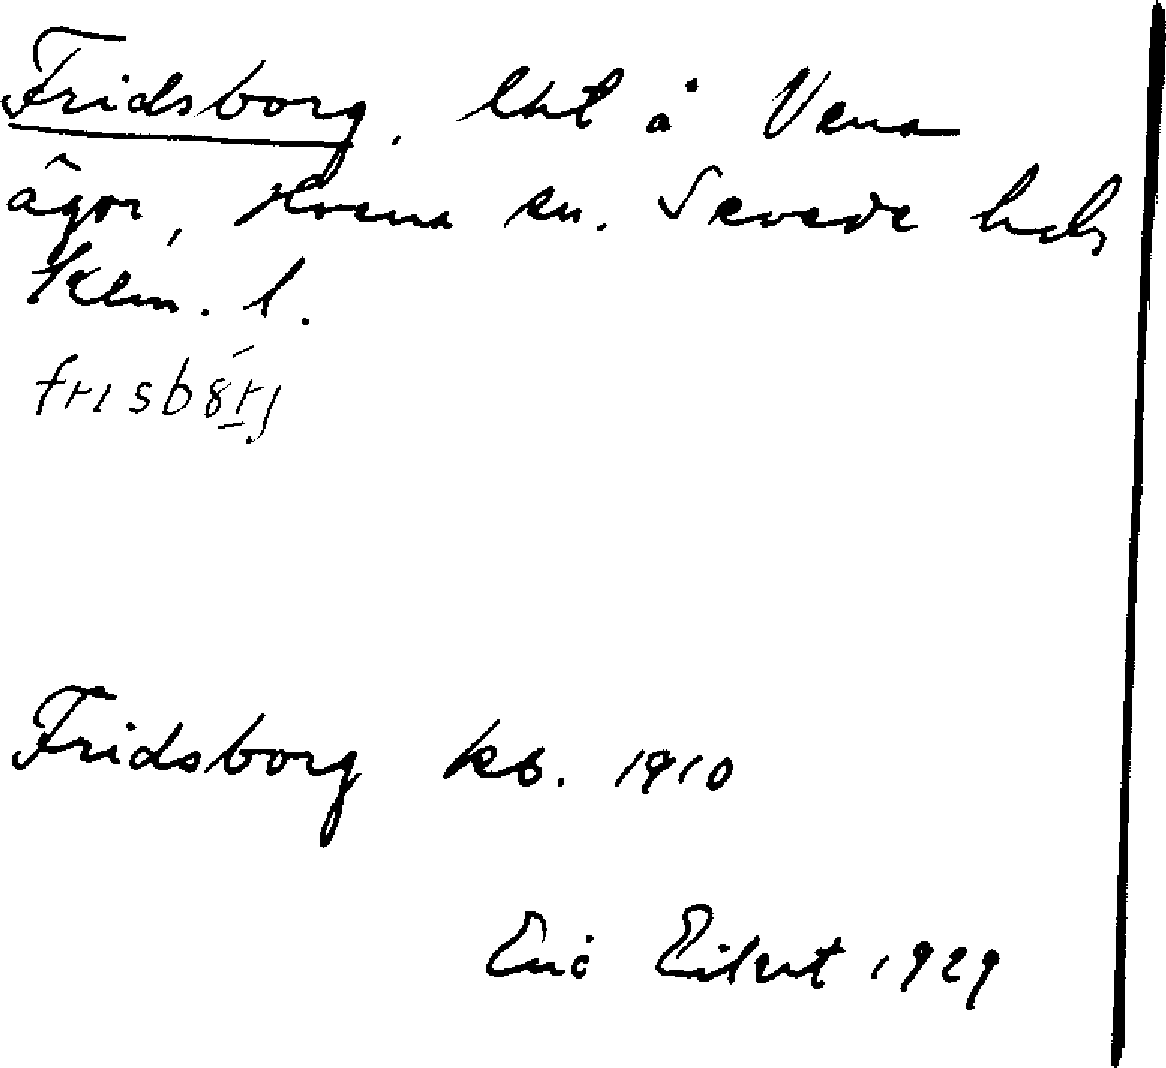 Fridsborg. lht å Vena
ägor, Hvena sn. Sevede hd
Klm. l.
Fridsborg kb. 1910
Eric Eilert 1929